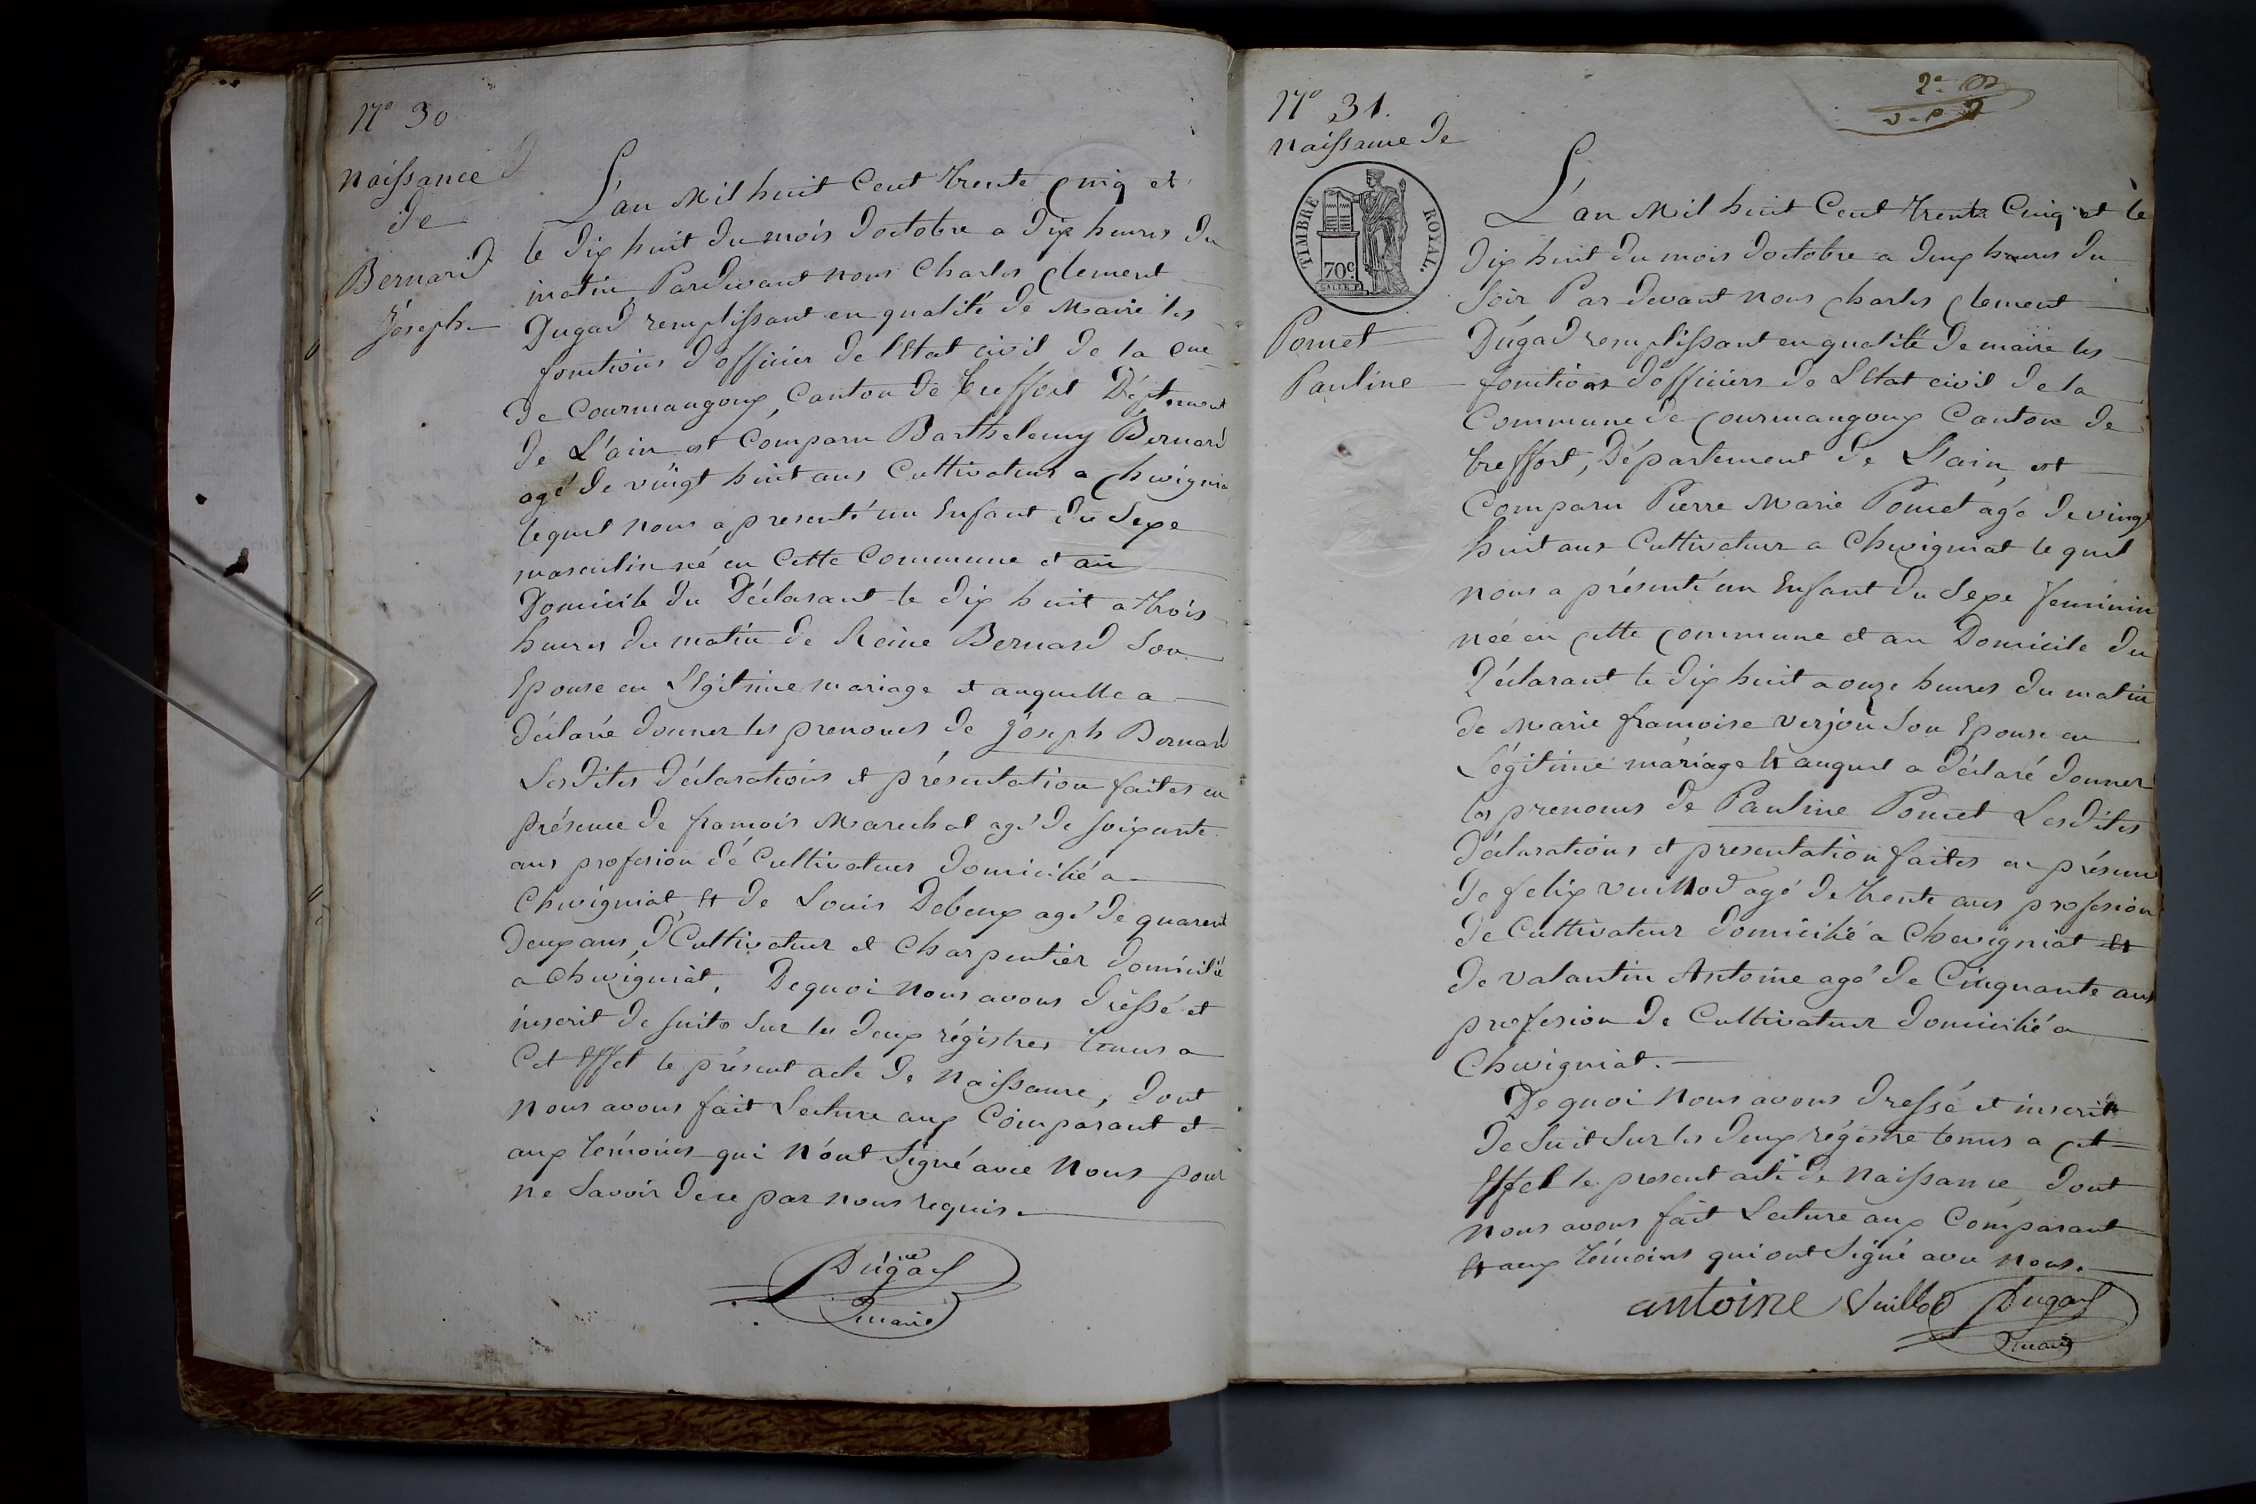 N° 30
Naissance
de
Bernard
Joseph
L'an Mil huit Cent trente Cinq et
le dix huit du mois doctobre a dix heures du
matin Pardevant nous Charles Clement
Dugad remplissant en qualité de Maire les
fonctions d'officier de l'Etat civil de la Cne
de Courmangoux, Canton de treffort Déptement
de L'ain est Comparu Barthelemy Bernard
agé de vingt huit ans Cultivateur a Chvignia
lequel nous a presenté un Enfant du Sexe
masculin né en Cette Commune et au
Domicile du Déclarant le dix huit a trois
heures du matin de Reine Bernard Son
Epouse en Légitime mariage et auquelle a
déclaré donner les prenoms de Joseph Bernard
Lesdites déclarations et présentation faites en
présence de francois Marechal agé de soixante
ans profesion dé Cultivateur domicilié a
Chvigniat Et de Louis Debeux agé de quarent
deux ans, d Cultivateur et Charpentier domicilié
a Chvigniat. De quoi Nous avons dressé et
inscrit de suite Sur les deux régistres tenus a
Cet Effet le présent acte de Naissance, dont
nous avons fait Lecture aux Comparant et
aux témoins qui n'ont Signé avec Nous pour
ne Savoir de ce par nous requis.
Dugad
maire
N° 31.
Naissance de
TIMBRE ROYAL.
70c.
Pomet
Pauline
L'an Mil huit Cent trente Cinq et le
dix huit du mois doctobre a deux heures du
Soir Par devant nous Charles Clement
Dugad remplissant en qualité de maire les
fonctions d'officiers de L'Etat civil de la
Commune de Courmangoux Canton de
treffort, Département de L'ain, est
Comparu Pierre Marie Pomet agé de vingt
huit ans Cultivateur a Chevigniat le quel
nous a présenté un Enfant du Sexe feminin
née en cette Commune et au Domicile du
Déclarant le dix huit a onze heures du matin
de Marie francoise verjou Son Epouse en
Légitime mariage Et auquel a déclaré donner
les prenoms de Pauline Pomet Lesdites
déclarations et presentation faites en présence
de felix vuillod agé de trente ans profesion
de Cultivateur domicilié a Chevigniat Et
de valantin Antoine agé de Cinquante ans
profesion de Cultivateur domicilié a
Chvigniat.
De quoi Nous avons dressé et inscrit
de Suit Sur les deux régistre tenus a cet
Effet le present acte de Naissance, dont
nous avons fait Lecture aux Comparant
Et aux témoins qui ont Signé avec nous.
antoine Vuillod Dugad
maire